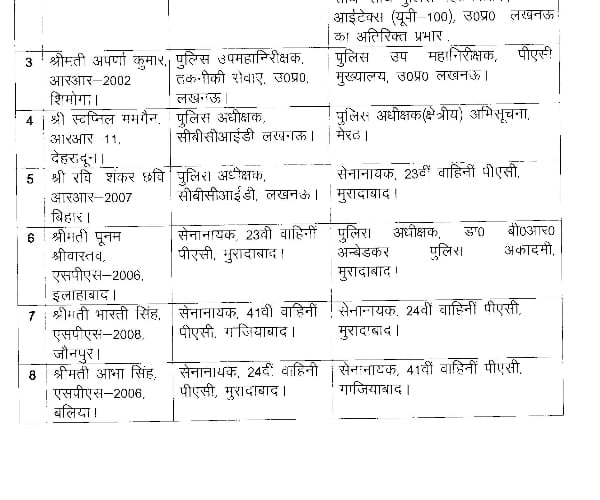 आईटेक्स (यूपी–100), उ0प्र0 लखनऊ
का अतिरिक्त प्रभार .
3 श्रीमती अपर्णा कुमार, पुलिस उपमहानिरीक्षक, पुलिस उप महानिरीक्षक, पीएसी
आरआर–2002 तकनीकी सेवाए, उ0प्र0, मुख्यालय, उ0प्र0 लखनऊ।
शिमोगा। लखनऊ।
4 श्री स्वप्निल ममगैन, पुलिस अधीक्षक, पुलिस अधीक्षक(क्षेत्रीय) अभिसूचना,
आरआर 11, सीबीसीआईडी लखनऊ। मेरठ।
देहरादून।
5 श्री रवि शंकर छवि पुलिस अधीक्षक, सेनानायक, 23वीं वाहिनीं पीएसी,
आरआर–2007 सीबीसीआईडी, लखनऊ। मुरादाबाद।
बिहार।
6 श्रीमती पूनम सेनानायक, 23वीं वाहिनीं पुलिस अधीक्षक, डा0 बी0आर0
श्रीवास्तव, पीएसी, मुरादाबाद। अम्बेडकर पुलिस अकादमी,
एसपीएस–2006, मुरादाबाद।
इलाहाबाद।
7 श्रीमती भारती सिंह, सेनानायक, 41वीं वाहिनीं सेनानायक, 24वीं वाहिनीं पीएसी,
एसपीएस–2006, पीएसी, गाजियाबाद। मुरादाबाद।
जौनपुर।
8 श्रीमती आभा सिंह, सेनानायक, 24वीं वाहिनी सेनानायक, 41वीं वाहिनीं पीएसी,
एसपीएस–2006, पीएसी, मुरादाबाद। गाजियाबाद।
बलिया।